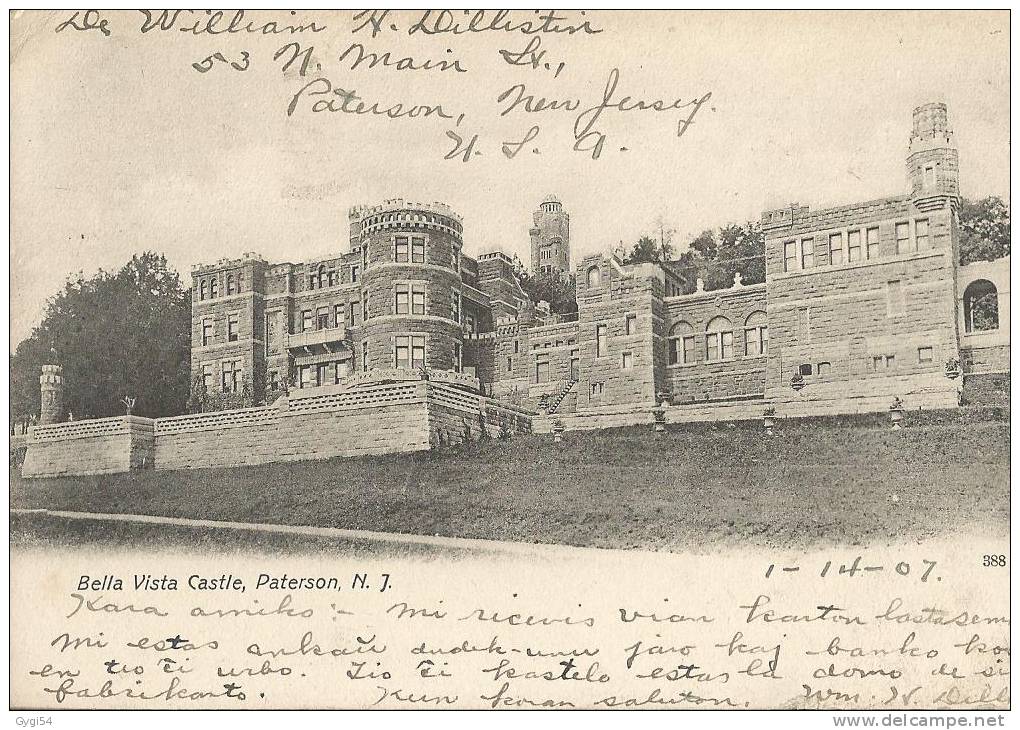 De William H. Dillistin
53 N. Main St.,
Paterson, New Jersey.
U. S. A.
388
1-14-07.
Bella Vista Castle, Paterson, N. J.
Kara amiko:- Mi ricevis vian karton lastasem
Mi estas ankaŭ dudek-unu jaro kaj banko
en tio ĉi urbo. Tio ĉi kastelo estas la domo de si
fabrikanto. Kun koran saluton. Wm. H. Dill
Gygi54
www.delcampe.net